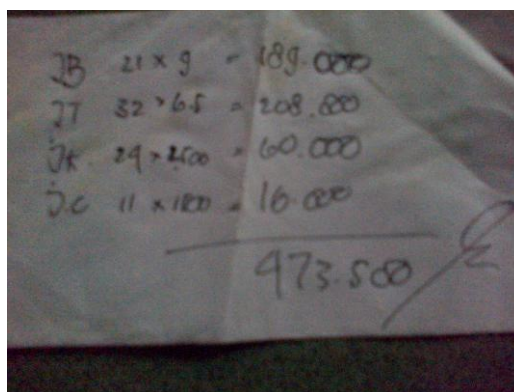 JB 21 x 9 = 189.000
JT 32 x 6.5 = 208.000
JK. 24 x 2500 = 60.000
J.C 11 x 1500 = 16.000
473.500